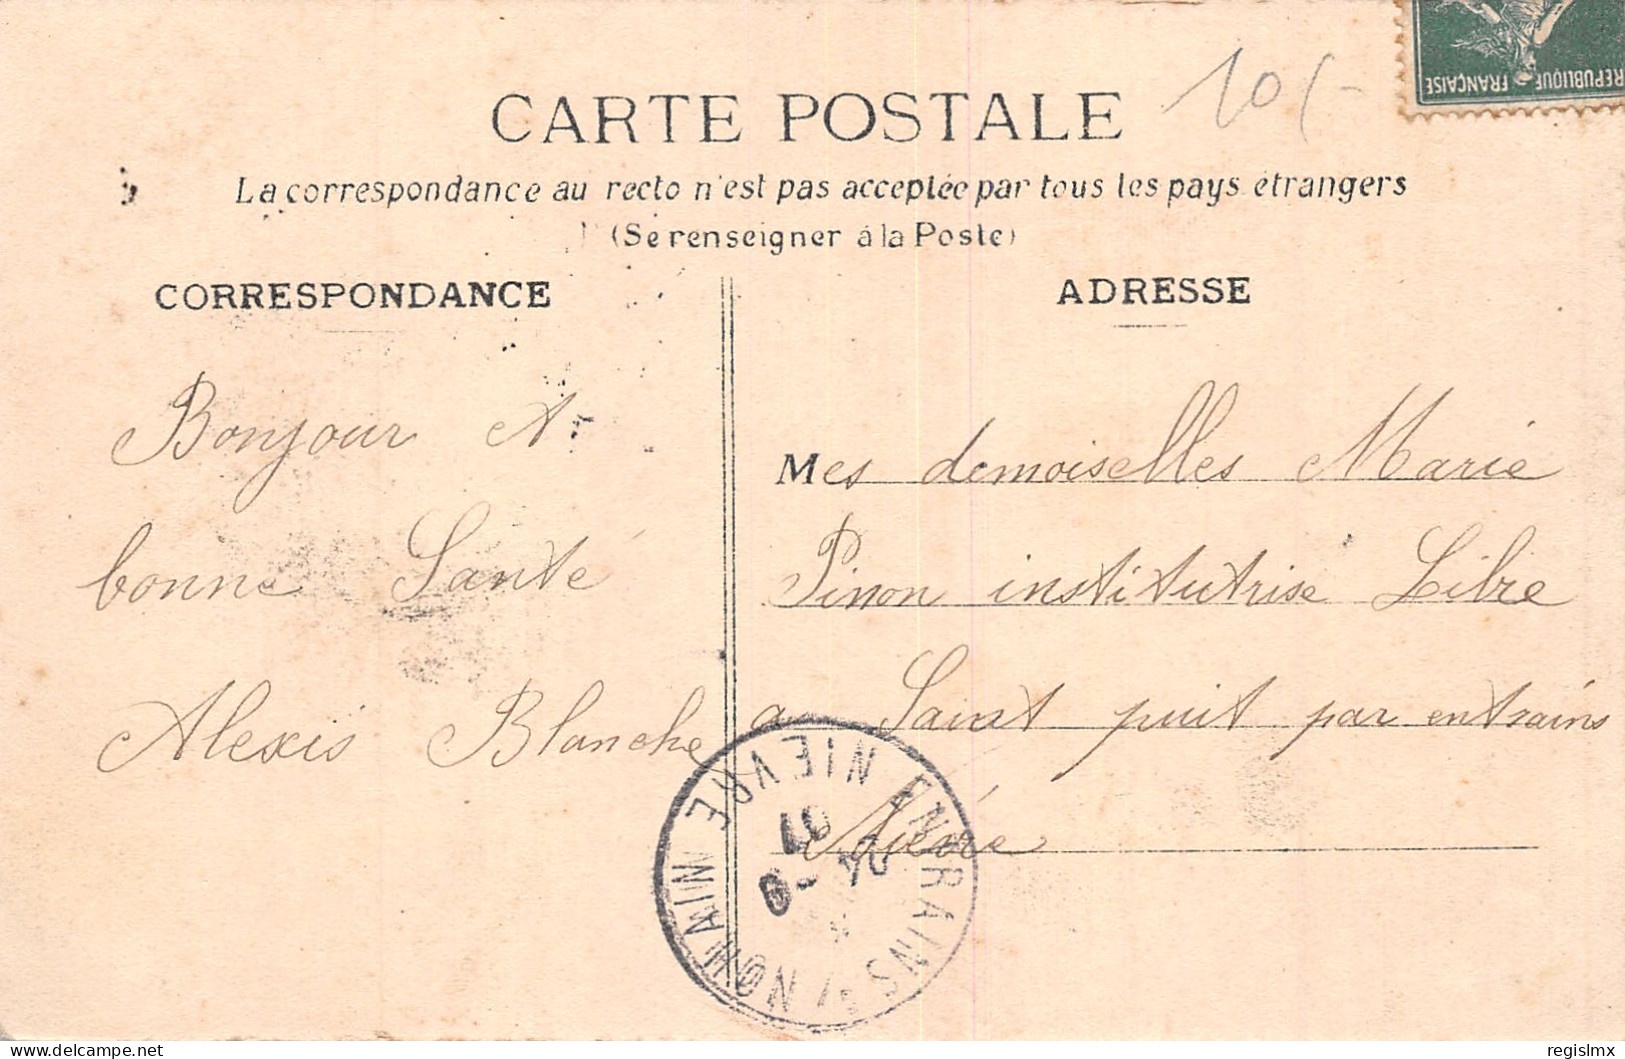 RÉPUBLIQUE FRANÇAISE
10/-
CARTE POSTALE
La correspondance au recto n'est pas acceptée par tous les pays étrangers
(Se renseigner à la Poste)
CORRESPONDANCE
Bonjour et
bonne Santé
Alexis Blanche
ADRESSE
Mes demoiselles Marie
Pinon institutrise Libre
a Saint puit par entrains
Nièvre
ENTRAINS-S-NOHAIN NIEVRE
delcampe.net
regislmx